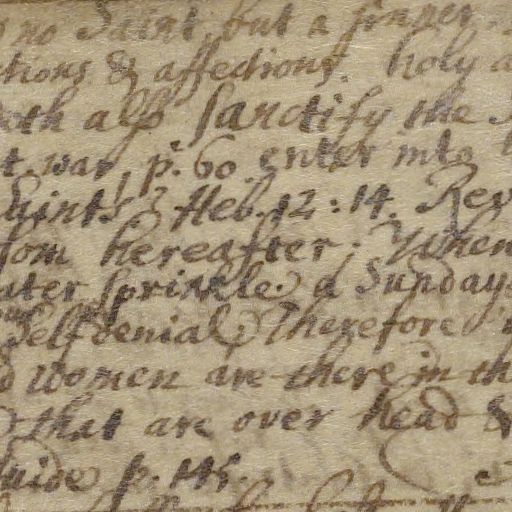 no Saint, but a sinner.
ctions & affections. holy a
doth also sanctify the
t. war, p. 60. enter into
Saints. Heb. 12 : 14. Rev
hereafter; When
ater sprinkle. a Sunday
Selfdenial; Therefore
women are there in th
that are over head &
uide p. 145.